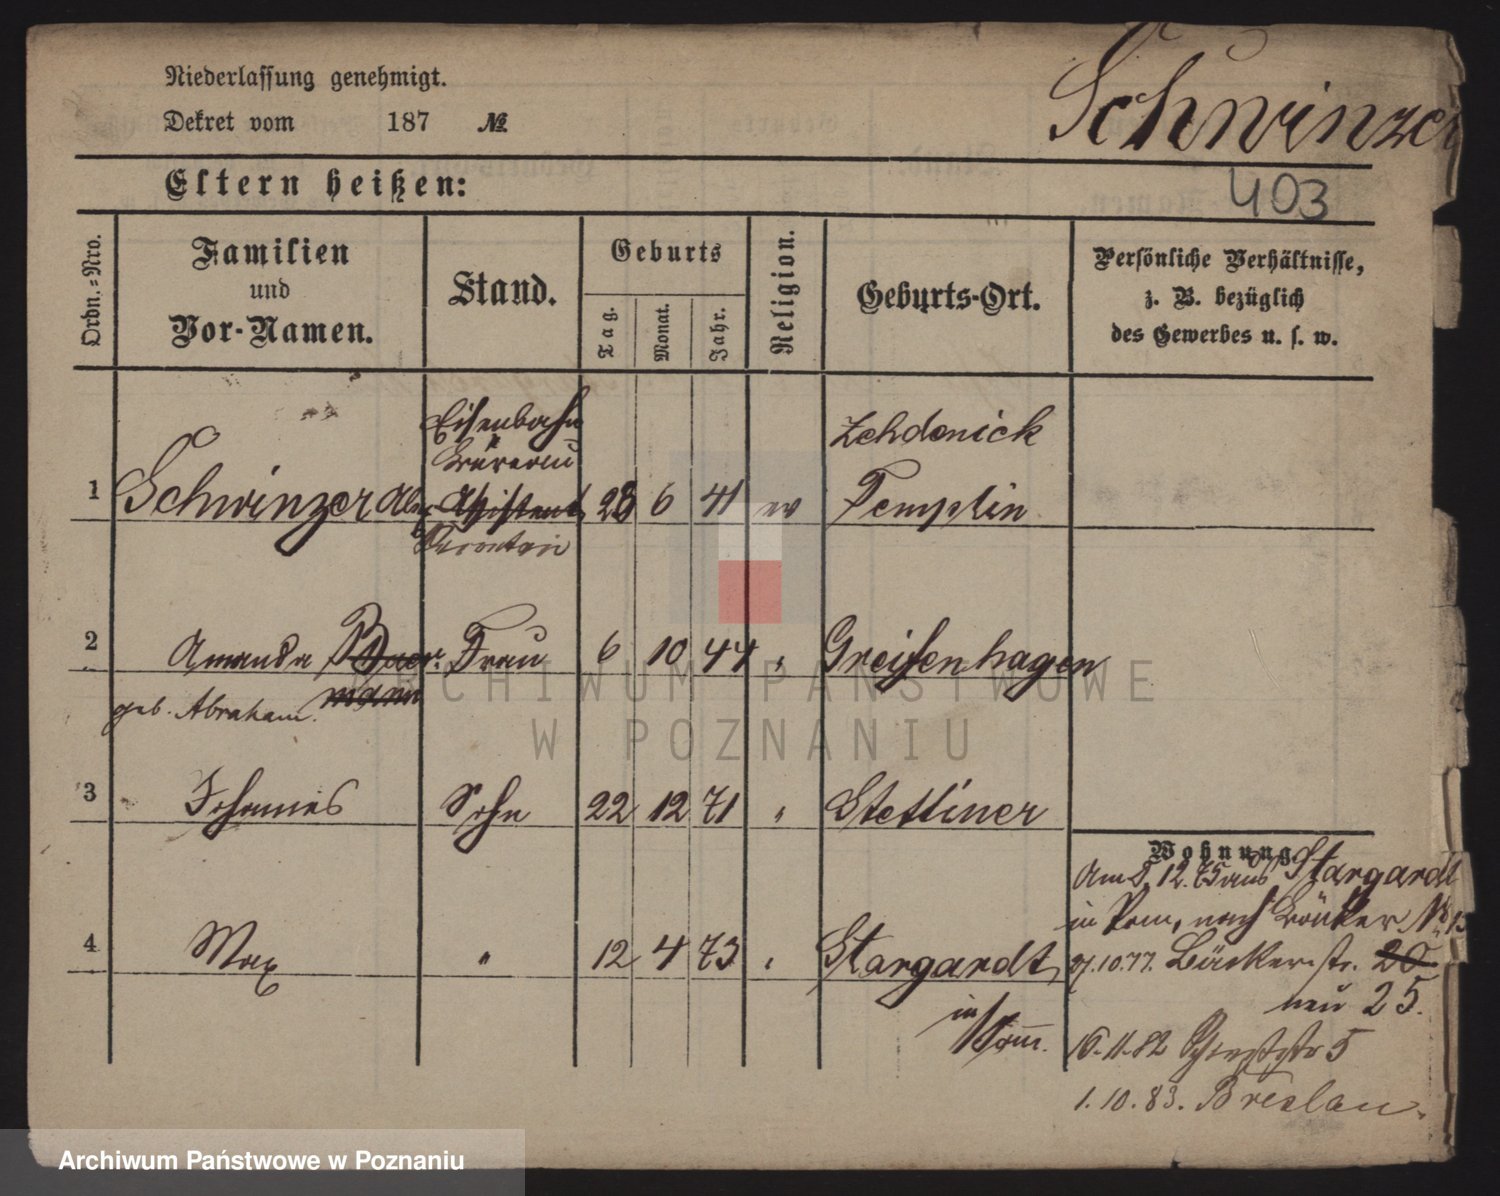 Niederlassung genehmigt.
Schwinzer
Dekret vom 187 №
Eltern heißen:
403
Ordn.-Nro.
Familien und Vor-Namen.
Stand.
Geburts
Tag.
Monat.
Jahr.
Religion.
Geburts-Ort.
Persönliche Verhältnisse, z. B. bezüglich des Gewerbes u. s. w.
Eisenbahn
Büreau
Zehdenick
1 Schwinzer Assistent 28 6 41 ev Templin
Secretair
2 Amanda Frau 6 10 44 " Greifenhagen
geb. Abraham. mann
3 Johannes Sohn 22 12 71 " Stettiner
Wohnung.
Am 5. 12. 75 aus Stargardt
in Pom, nach Bäcker № 13
4 Max " 12 4 73 " Stargardt
27.10.77. Bäckerstr. 20
neu 25.
in Pomm.
16.11.82 5
1.10.83. Breslau.
ARCHIWUM PAŃSTWOWE
W POZNANIU
Archiwum Państwowe w Poznaniu